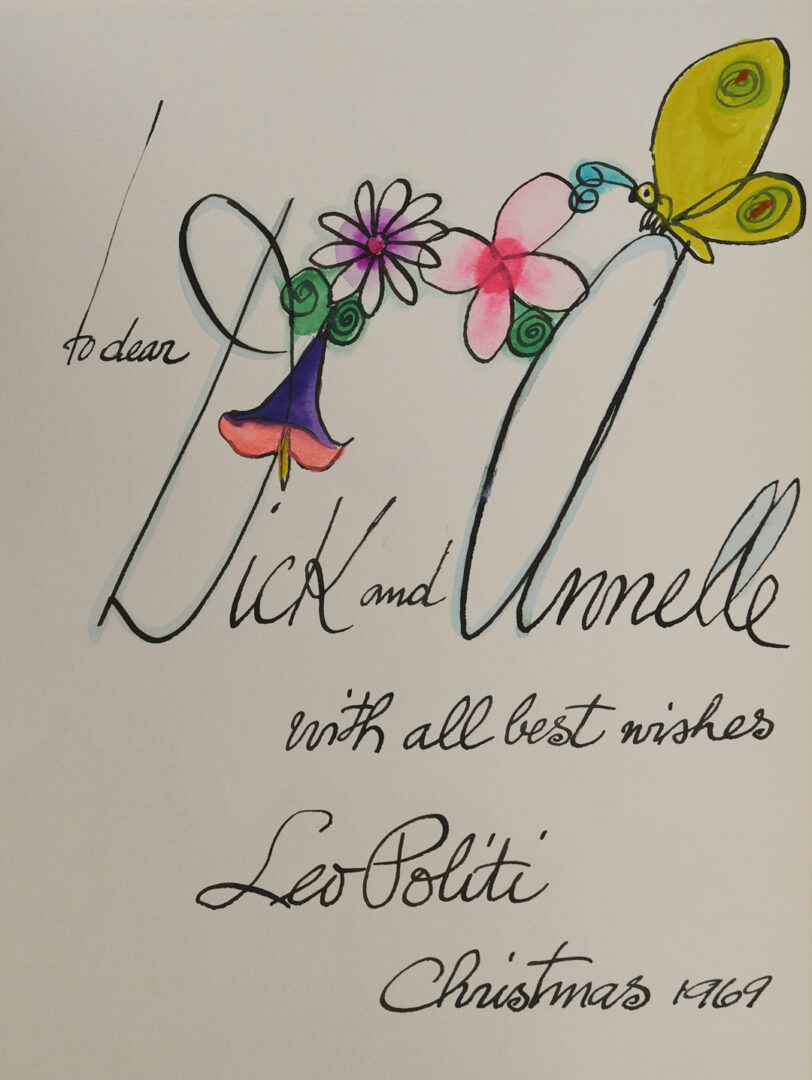 to dear
Dick and Annelle
with all best wishes
Leo Politi
Christmas 1969